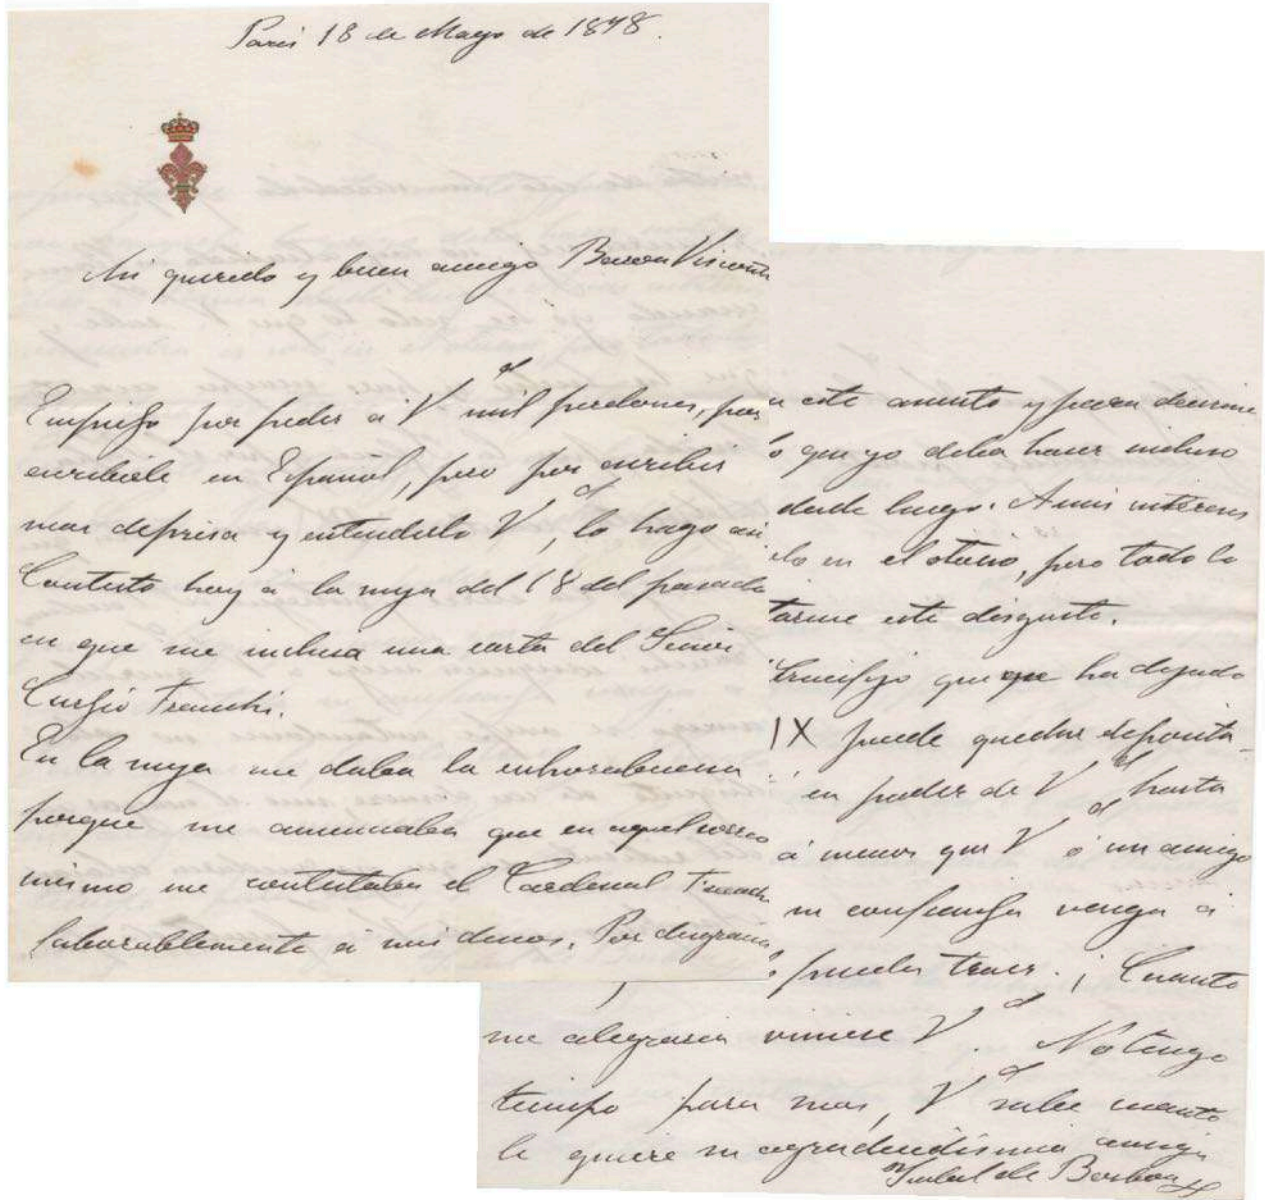 Paris 18 de Mayo de 1878.
Mi querido y buen amigo Baron Visconti
Empiezo por pedir á V^d mil perdones, por
escribirle en Español, pero por escribir
mas deprisa y entenderlo V^d, lo hago asi
Contesto hoy á la suya del 18 del pasado
en que me incluia una carta del Señor
Curzio Franchi.
En la suya me daba la enhorabuena
porque me anunciaba que en aquel correo
mismo me contestaba el Cardenal Franchi
faborablemente á mis deseos. Por desgracia
este asunto y para decirme
que yo deba hacer incluso
desde luego. A mis intereses
en el otoño, pero todo lo
tarme este disgusto.
Crucifijo que que ha dejado
IX puede quedar deposita-
en poder de V^d hasta
á menos que V^d ó un amigo
su confianza venga á
pueda traer. ¡Cuanto
me alegraria viniese V^d. No tengo
tiempo para mas, V^d sabe cuanto
le quiere su agradecidisima amiga
Isabel de Borbon